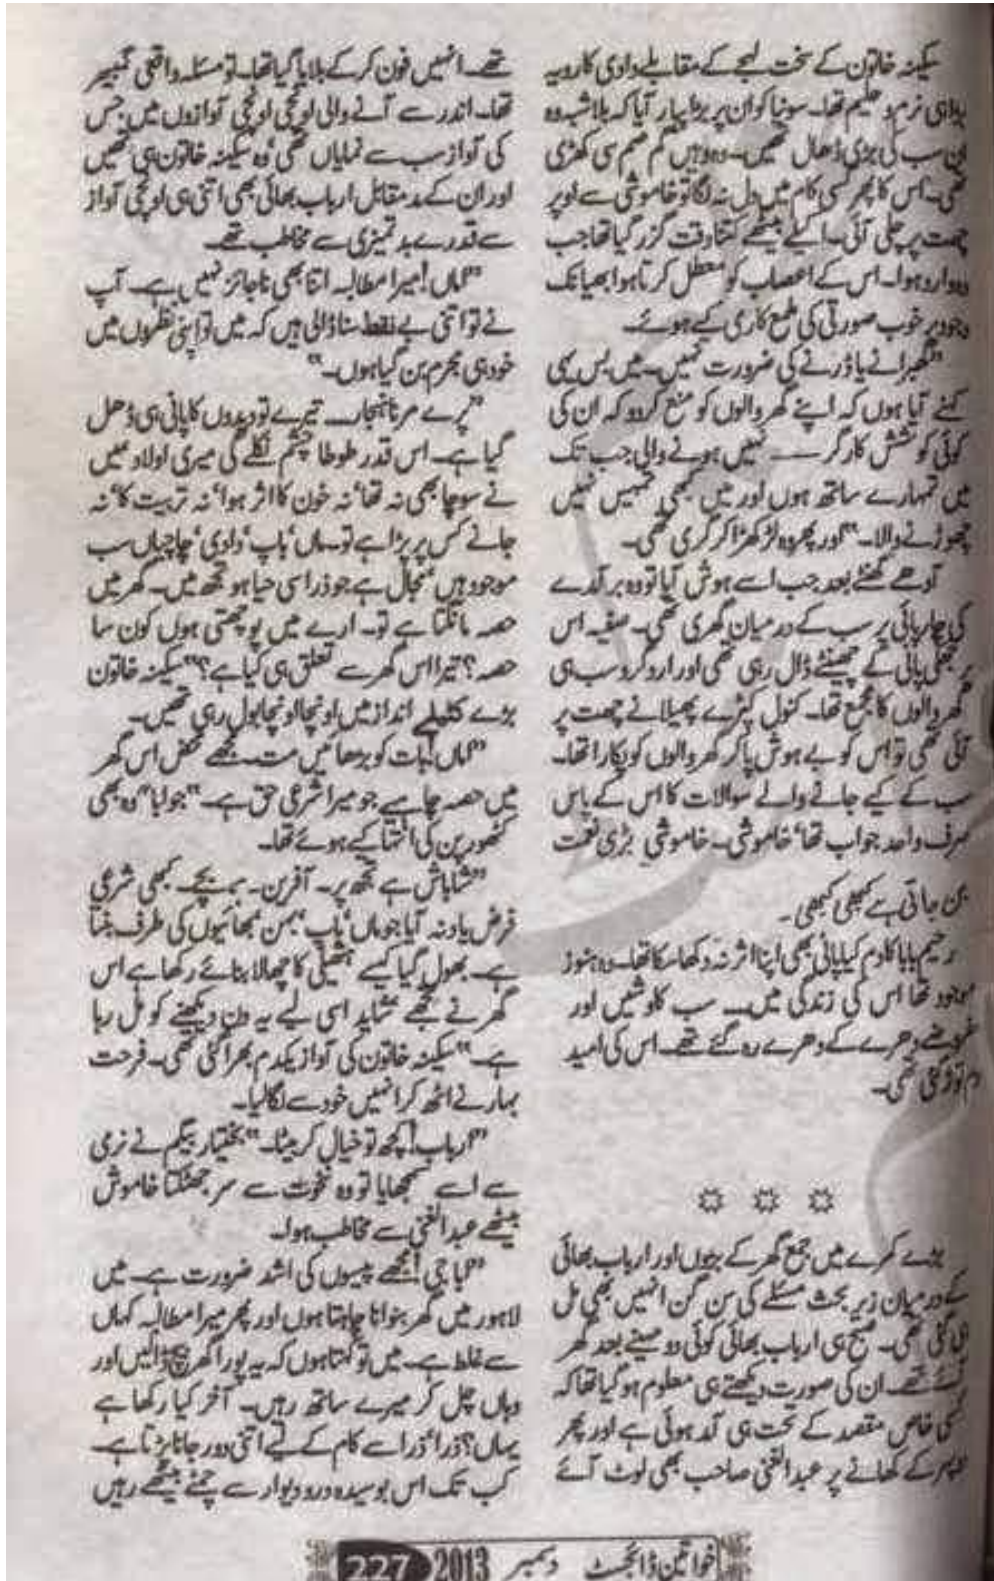 سکینہ خاتون کے سخت لہجے کے مقابلے دادی کا رویہ
بڑا ہی نرم و حلیم تھا۔ سونیا کو ان پر بڑا پیار آیا کہ بلاشبہ وہ
ان سب کی بڑی ڈھال تھیں۔ وہ وہیں گم صم سی کھڑی
تھی۔ اس کا پھر کسی کام میں دل نہ لگا تو خاموشی سے اوپر
چھت پر چلی آئی۔ اکیلے بیٹھے کتنا وقت گزر گیا تھا جب
وہ وارد ہوا۔ اس کے اعصاب کو معطل کرتا ہوا بھیانک
وجود پر خوب صورتی کی ملمع کاری کیے ہوئے۔
”گھبرانے یا ڈرنے کی ضرورت نہیں۔ میں بس یہی
کہنے آیا ہوں کہ اپنے گھر والوں کو منع کر دو کہ ان کی
کوئی کوشش کارگر ــــ نہیں ہونے والی جب تک
میں تمہارے ساتھ ہوں اور میں کبھی تمہیں نہیں
چھوڑنے والا۔“ اور پھر وہ لڑکھڑا کر گری تھی۔
آدھے گھنٹے بعد جب اسے ہوش آیا تو وہ برآمدے
کی چارپائی پر سب کے درمیان گھری تھی۔ صفیہ اس
پر ٹھنڈے پانی کے چھینٹے ڈال رہی تھی اور اردگرد سب ہی
گھر والوں کا مجمع تھا۔ کنول کپڑے پھیلانے چھت پر
آئی تھی تو اس کو بے ہوش پا کر گھر والوں کو پکارا تھا۔
سب کے کیے جانے والے سوالات کا اس کے پاس
صرف واحد جواب تھا ’خاموشی۔ خاموشی بڑی نعمت
بن جاتی ہے کبھی کبھی۔
رحیم بابا کا دم کیا پانی بھی اپنا اثر نہ دکھا سکا تھا۔ وہ ہنوز
موجود تھا اس کی زندگی میں۔۔۔ سب کاوشیں اور
دھرے کے دھرے رہ گئے تھے۔ اس کی امید
دم توڑ گئی تھی۔
☼ ☼ ☼
بڑے کمرے میں جمع گھر کے بڑوں اور ارباب بھائی
کے درمیان زیر بحث مسئلے کی سن گن انہیں بھی مل
ہی گئی تھی۔ صبح ہی ارباب بھائی کوئی دو مہینے بعد گھر
آئے تھے۔ ان کی صورت دیکھتے ہی معلوم ہو گیا تھا کہ
کسی خاص مقصد کے تحت ہی آمد ہوئی ہے اور پھر
دوپہر کے کھانے پر عبدالغنی صاحب بھی لوٹ آئے
تھے۔ انہیں فون کر کے بلایا گیا تھا۔ تو مسئلہ واقعی گمبھیر
تھا۔ اندر سے آنے والی اونچی اونچی آوازوں میں جس
کی آواز سب سے نمایاں تھی ’وہ سکینہ خاتون ہی تھیں
اور ان کے مدمقابل ارباب بھائی بھی اتنی ہی اونچی آواز
سے قدرے بدتمیزی سے مخاطب تھے۔
”اماں! میرا مطالبہ اتنا بھی ناجائز نہیں ہے۔ آپ
نے تو اتنی بے نقط سنا ڈالی ہیں کہ میں تو اپنی نظروں میں
خود ہی مجرم بن گیا ہوں۔“
”پرے مر ناہنجار۔ تیرے تو دیدوں کا پانی ہی ڈھل
گیا ہے۔ اس قدر طوطا چشم نکلے گی میری اولاد میں
نے سوچا بھی نہ تھا ’نہ خون کا اثر ہوا ’نہ تربیت کا ’نہ
جانے کس پر پڑا ہے تو۔ ماں ’باپ ’دادی ’چاچیاں سب
موجود ہیں ’مجال ہے جو ذرا سی حیا ہو تجھ میں۔ گھر میں
حصہ مانگتا ہے تو۔ ارے میں پوچھتی ہوں کون سا
حصہ؟ تیرا اس گھر سے تعلق ہی کیا ہے؟“ سکینہ خاتون
بڑے کٹیلے انداز میں اونچا اونچا بول رہی تھیں۔
”اماں! بات کو بڑھائیں مت۔ مجھے محض اس گھر
میں حصہ چاہیے جو میرا شرعی حق ہے۔“ جوابا“ وہ بھی
کٹھورپن کی انتہا کیے ہوئے تھا۔
”شاباش ہے تجھ پر۔ آفرین۔ بچے۔ کبھی شرعی
فرض یاد نہ آیا جو ماں ’باپ ’بہن ’بھائیوں کی طرف بنتا
ہے۔ بھول گیا کیسے ہتھیلی کا چھالا بنائے رکھا ہے اس
گھر نے تجھے شاید اسی لیے یہ دن دیکھنے کو مل رہا
ہے۔“ سکینہ خاتون کی آواز یکدم بھرا گئی تھی۔ فرحت
بہار نے اٹھ کر انہیں خود سے لگا لیا۔
”ارباب! کچھ تو خیال کر بیٹا۔“ بختیار بیگم نے نرمی
سے اسے سمجھایا تو وہ نخوت سے سر جھٹکتا خاموش
بیٹھے عبدالغنی سے مخاطب ہوا۔
”ابا جی! مجھے پیسوں کی اشد ضرورت ہے۔ میں
لاہور میں گھر بنوانا چاہتا ہوں اور پھر میرا مطالبہ کہاں
سے غلط ہے۔ میں تو کہتا ہوں کہ یہ پورا گھر بیچ ڈالیں اور
وہاں چل کر میرے ساتھ رہیں۔ آخر کیا رکھا ہے
یہاں؟ ذرا ’ذرا سے کام کے لیے اتنی دور جانا پڑتا ہے۔
کب تک اس بوسیدہ در و دیوار سے چمٹے بیٹھے رہیں
خواتین ڈائجسٹ دسمبر 2013 227